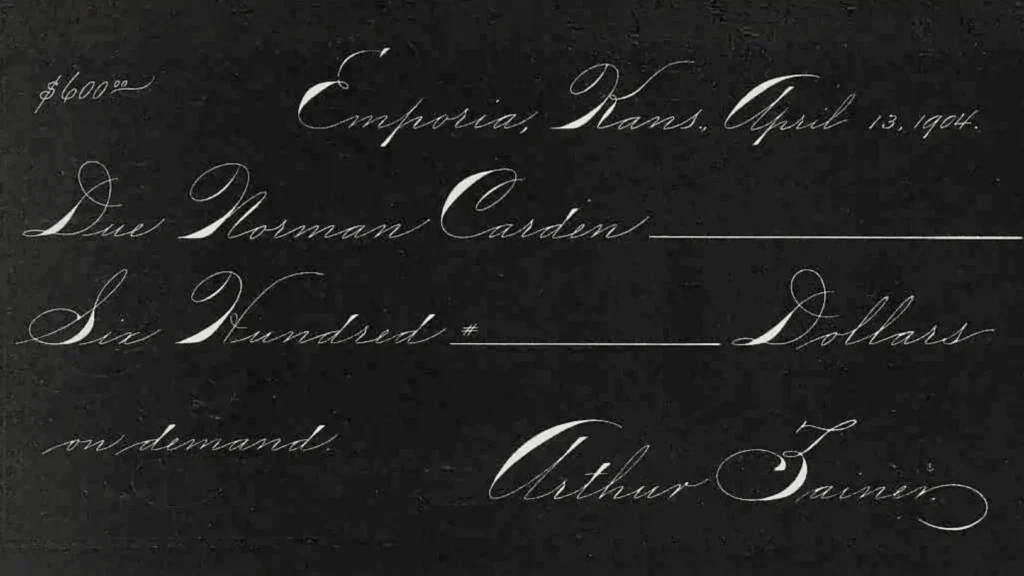 $600⁰⁰
Emporia, Kans., April 13, 1904.
Due Norman Carden
Six Hundred # Dollars
on demand.
Arthur